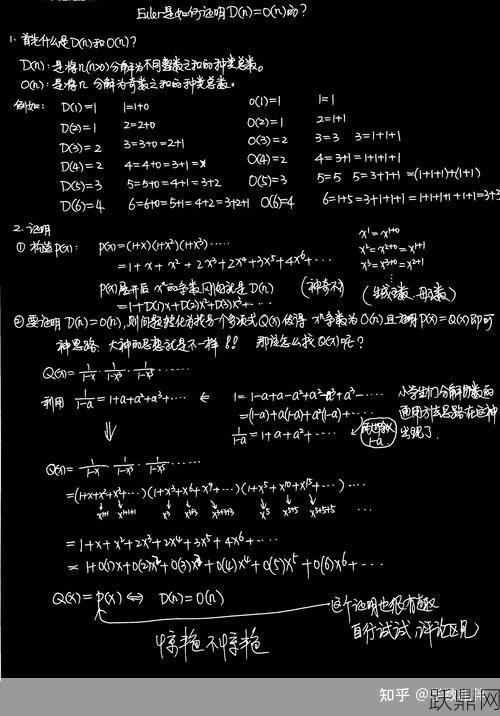 Euler是如何证明D(n)=O(n)的?
1. 首先什么是D(n)和O(n)?
D(n): 是将n(n>0)分解为不同整数之和的种类总数。
O(n): 是将n 分解为奇数之和的种类总数。
例如: D(1)=1 1=1+0 O(1)=1 1=1
D(2)=1 2=2+0 O(2)=1 2=1+1
D(3)=2 3=3+0=2+1 O(3)=2 3=3 3=1+1+1
D(4)=2 4=4+0=3+1 O(4)=2 4=3+1=1+1+1+1
D(5)=3 5=5+0=4+1=3+2 O(5)=3 5=5 5=3+1+1 =(1+1+1)+(1+1)
D(6)=4 6=6+0=5+1=4+2=3+2+1 O(6)=4 6=1+5=3+1+1+1=1+1+1+1+1+1=3+3
2. 证明
① 构造P(x): P(x)=(1+x)(1+x²)(1+x³)·····
=1+x+x²+2x³+2x⁴+3x⁵+4x⁶+···
x¹=x¹⁺⁰
x²=x²⁺⁰=x¹⁺¹
x³=x³⁺⁰=x²⁺¹
P(x)展开后 xⁿ的系数刚好就是D(n) (神奇不)
(生成函数、母函数)
=1+D(1)x+D(2)x²+D(3)x³+···
②要证明D(n)=O(n),则问题转化为找另一个多项式Q(x)使得 xⁿ系数为O(n)且证明P(x)=Q(x)即可
种思路 大神的思想就是不一样!! 那该怎么找Q(x)呢?
Q(x)=1/1-x · 1/1-x³ · 1/1-x⁵ ······
利用 1/1-a =1+a+a²+a³+··· ⇐ 1=1-a+a-a²+a²-a³+a³-····
=(1-a)+a(1-a)+a²(1-a)+···
1/1-a =1+a+a²+····
小学生们分解
通用方法思路在这种
出现了.
1-a
⇓
Q(x)=1/1-x · 1/1-x³ · 1/1-x⁵ ······
=(1+x+x²+x³+···)(1+x³+x⁶+x⁹+···)(1+x⁵+x¹⁰+x¹⁵+···)····
x¹⁺¹ x¹⁺¹⁺¹ x³ x³⁺³ x³⁺³⁺³ x⁵ x⁵⁺⁵ x⁵⁺⁵⁺⁵ ···
=1+x+x²+2x³+2x⁴+3x⁵+4x⁶+···
=1+O(1)x+O(2)x²+O(3)x³+O(4)x⁴+O(5)x⁵+O(6)x⁶+···
Q(x)=P(x) ⇔ D(n)=O(n)
这个证明也很有趣
自行试试,评论区见)
惊艳不惊艳
知乎
跃鼎网